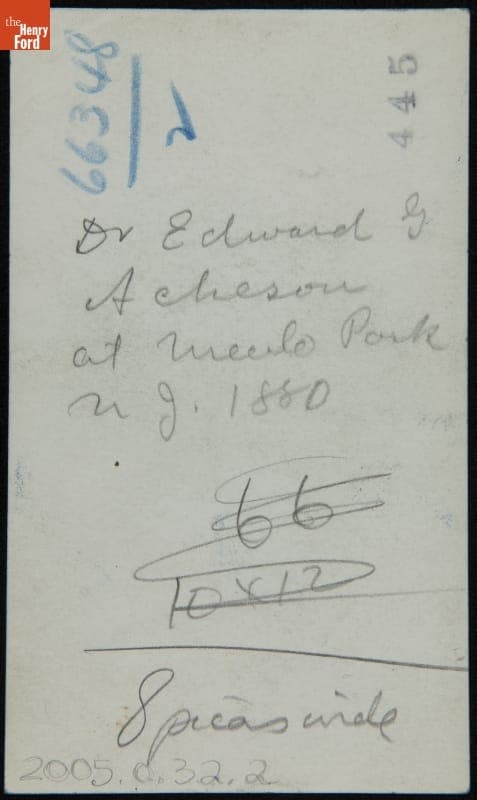 the
Henry
Ford
66348/2
445
Dr Edward G
Acheson
at Menlo Park
N J. 1880
66
10 x 12
8 picas wide
2005.0.32.2